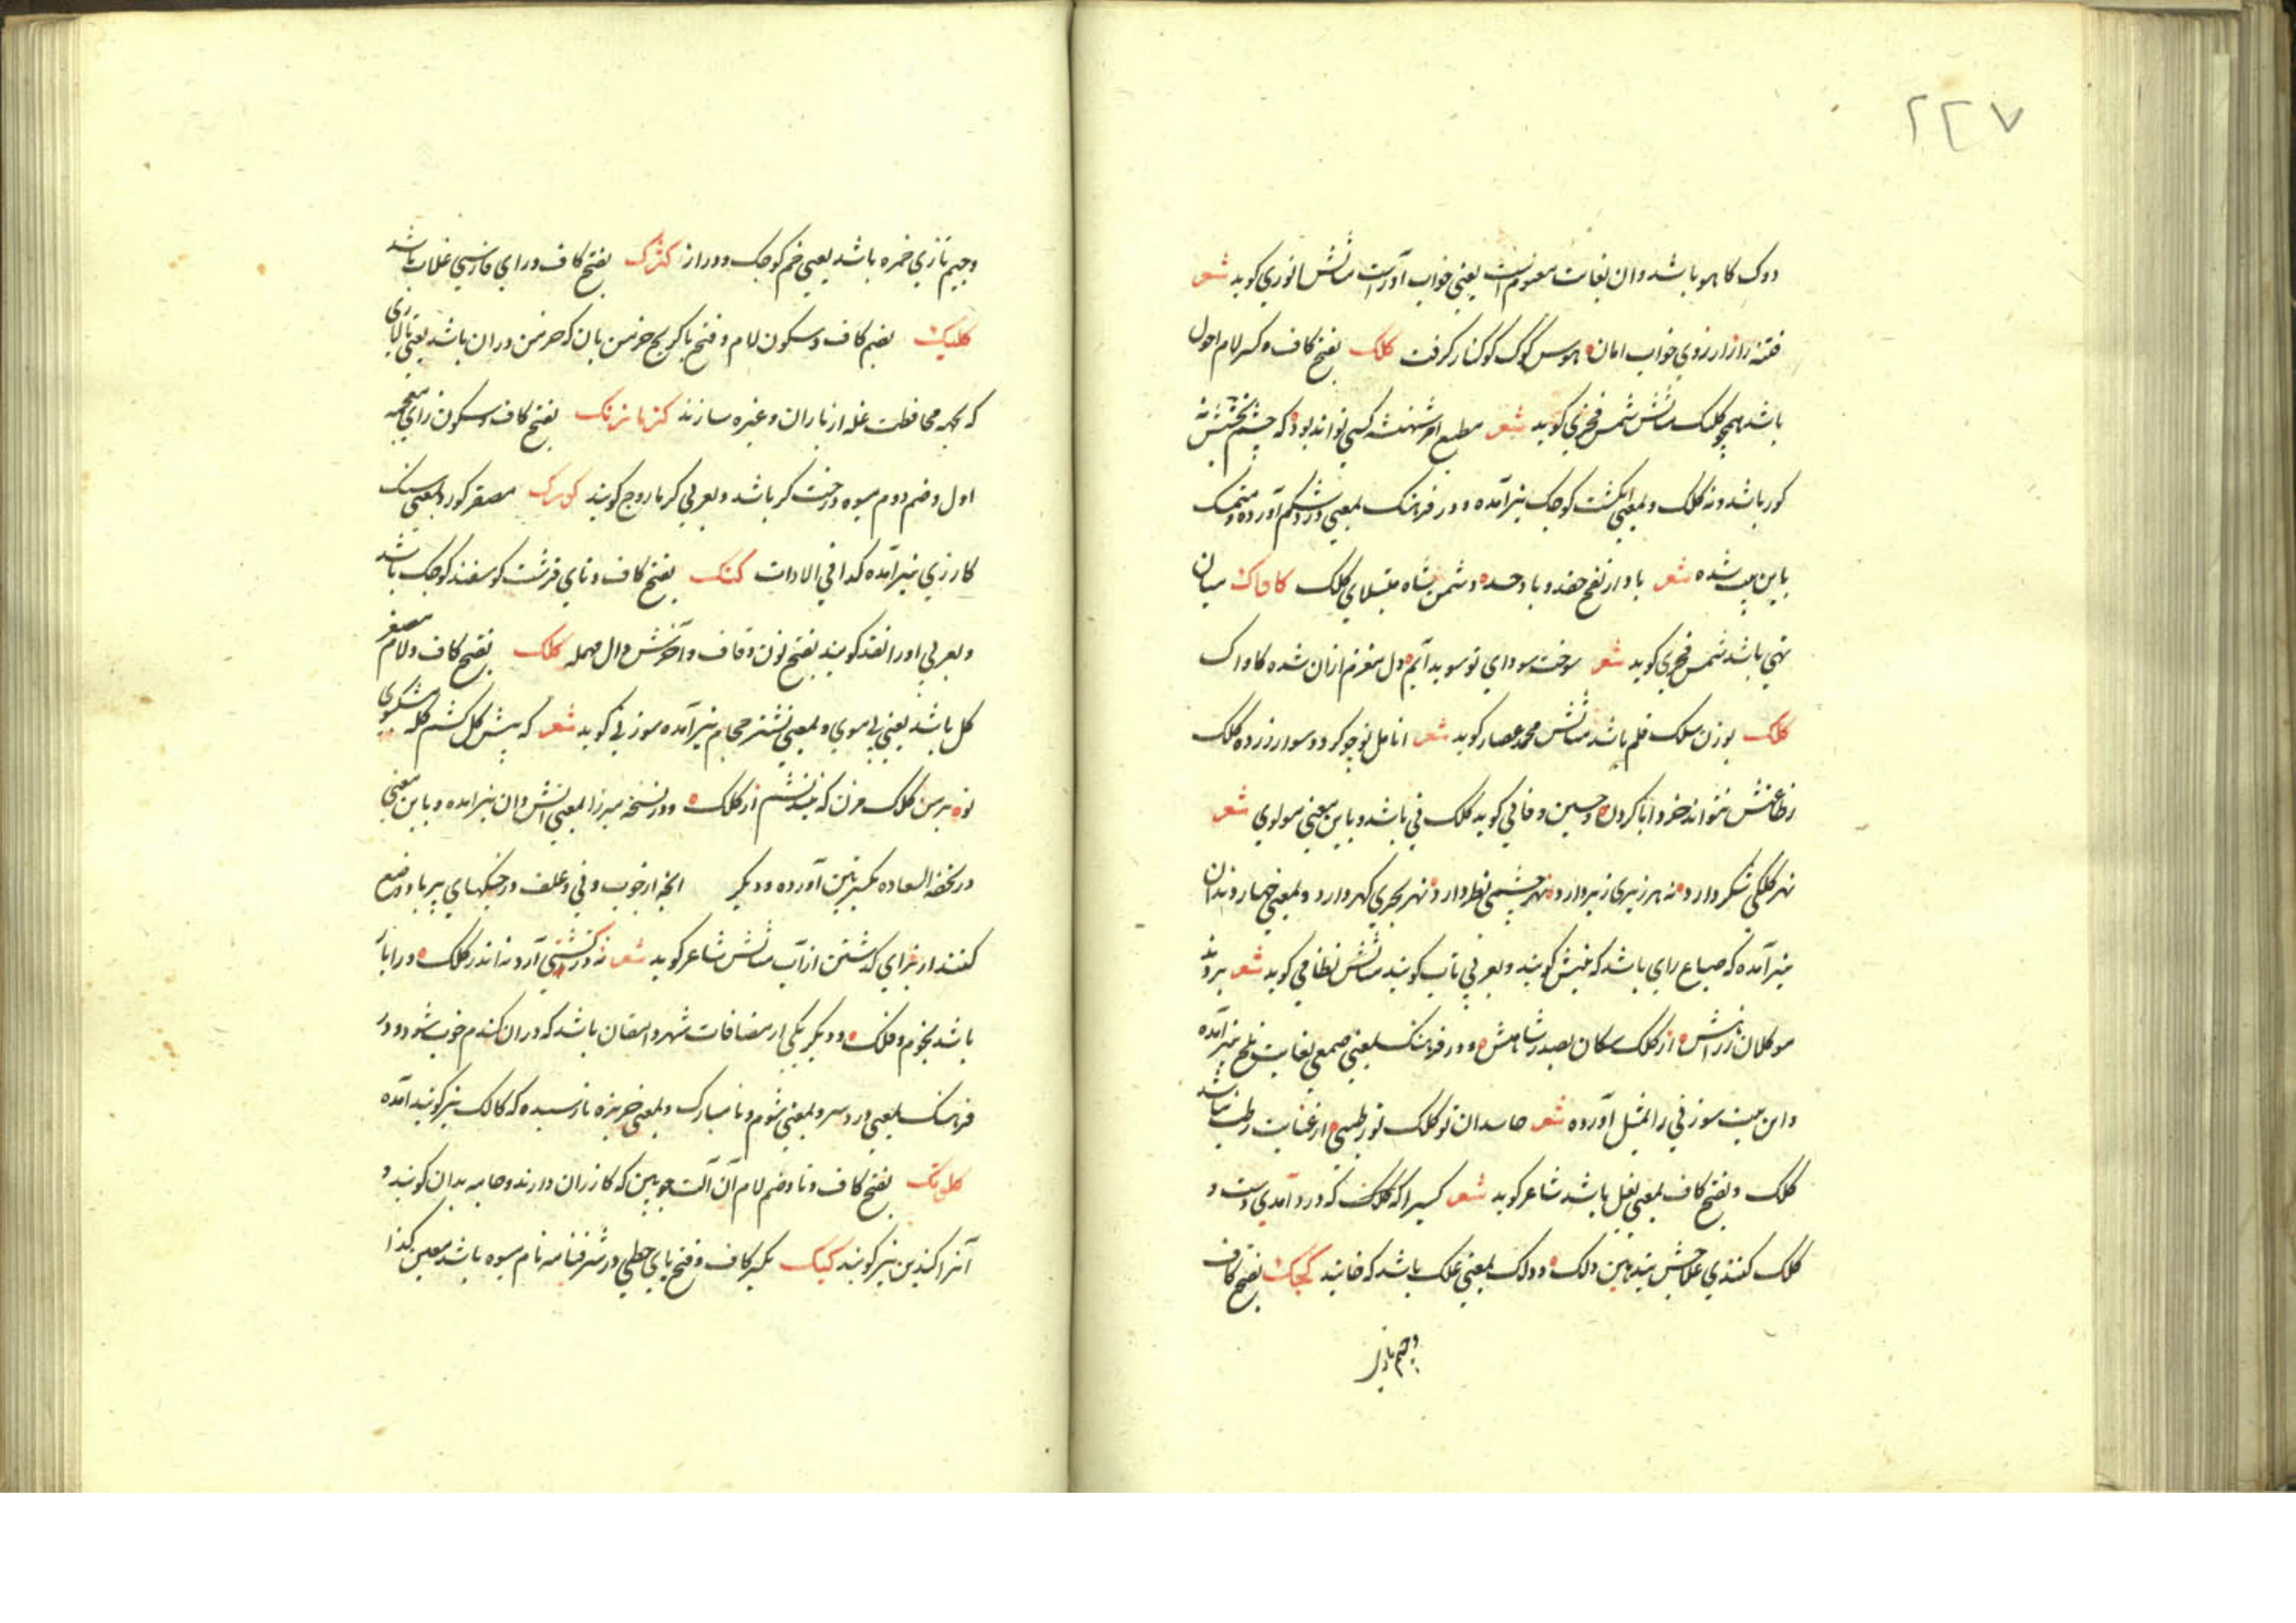 ۲۲۷
دوک کاهو باشد و ان بغایت منومست یعنی خواب آورست مثالش انوری کوید شعر
فتنه را از ارزوی خواب امان ه هوس کوک کوکنار کرفت کلک بفتح کاف و کسر لام احول
باشد همچو کلک مثالش شمس فخری کوید شعر مطیع امر شهنشه کسی تواند بود که چشم بختش نه
کور باشد و نه کلک و بمعنی انکشت کوچک نیز آمده و در فرهنک بمعنی درد شکم آورده و متمسک
باین بیت شده شعر باد از نفخ حقد و باد حسد ه دشمن شاه مبتلای کلک کاواک میان
تهی باشد شمس فخری کوید شعر سوخت سودای تو سویدایم ه دل مغرم ازان شده کاواک
کلک بوزن سلک قلم باشد مثالش محمد عصار کوید شعر انامل تو چو کردد سوار زرده کلک
ز طاعتش نتواند خرد ابا کردن ه و حسین وفائی کوید کلک نی باشد و باین معنی مولوی شعر
نهر کلکی شکر دارد ه نه هر زیری زبر دارد ه نهر چشمی نظر دارد ه نهر بحری کهر دارد و بمعنی چهار دندان
نیز آمده که سباع رای باشد که نیش کویند و بعربی ناب کویند مثالش نظامی کوید شعر بردند
موکلان راهش ه از کلک سکان بصدر شاهش ه و در فرهنک بمعنی صمغی بغایت تلخ نیز آمده
و این بیت سوزنی را بمثل آورده شعر حاسدان تو کلک تو رطبی ه از غنایت رطب نباشد
کلک و بفتح کاف بمعنی بغل باشد شاعر کوید شعر کسیرا که کلک که درد آمدی دست و
کلک کنندی علاجش بدین دلک ه و دلک بمعنی علک باشد که خایند کجک بفتح کاف
وجیم تازی
وجیم تازی خمره باشد یعنی خم کوچک و دراز کژک بفتح کاف و رای فارسی غلاب باشد
کلبک بضم کاف و سکون لام و فتح با کریج خرمن بان که خرمن دران باشد یعنی بالاری
که بجهه محافظت غله از باران و غیره سازند کزمازک بفتح کاف و سکون زای معجمه
اول و ضم دوم میوه درخت کز باشد و بعربی کزمازوج کویند کورک مصغر کور و بمعنی سنک
کازری نیز آمده کذا فی الادات کتک بفتح کاف و تای قرشت کوسفند کوچک باشد
و بعربی اورا نقد کویند بفتح نون و قاف و آخرش دال مهمله کلک بفتح کاف و لام مصغر
کل باشد یعنی بی موی و بمعنی نشتر حجام نیز آمده سوزنی کوید شعر که بیش کل کشم کله شکوی
تو ه بر من کلک مزن که نیندیشم از کلک ه و در نسخه میرزا بمعنی آتش دان نیز امده و باین معنی
در تحفة السعاده بکسرتین آورده و دیکر انچه از چوب و نی و علف و خیکهای پر باد وضع
کنند از برای کذشتن از آب مثالش شاعر کوید شعر نه در کشتی آرد نه اندر کلک ه ور ابا
باشد نجوم و فلک ه و دیکر یکی از مضافات شهر دامغان باشد که دران کندم خوب شود و در
فرهنک بمعنی درد سر و بمعنی شوم و نامبارک و بمعنی خربزه نارسیده که کالک نیز کویند آمده
کلتک بفتح کاف و تا و ضم لام آن آلت چوبین که کازران دارند و جامه بدان کوبند و
آنرا کندین نیز کویند کیک بکسر کاف و فتح یای حطی در شرفنامه نام میوه باشد معین کذا